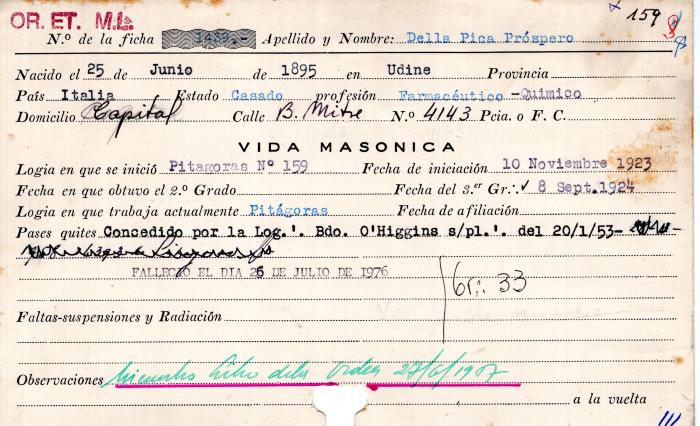 OR. ET. M.L. 159
N.º de la ficha 1489.- Apellido y Nombre: Della Pica Próspero
Nacido el 25 de Junio de 1895 en Udine Provincia
País Italia Estado Casado profesión Farmacéutico-Quimico
Domicilio Capital Calle B. Mitre N.º 4143 Pcia. o F. C.
VIDA MASONICA
Logia en que se inició Pitagoras Nº 159 Fecha de iniciación 10 Noviembre 1923
Fecha en que obtuvo el 2.º Grado Fecha del 3.er Gr∴ 8 Sept. 1924
Logia en que trabaja actualmente Pitágoras Fecha de afiliación
Pases quites Concedido por la Log.'. Bdo. O'Higgins s/pl.'. del 20/1/53-
FALLECIO EL DIA 26 DE JULIO DE 1976
Gr∴ 33
Faltas-suspensiones y Radiación
Observaciones Miembro Libre de la Orden
a la vuelta